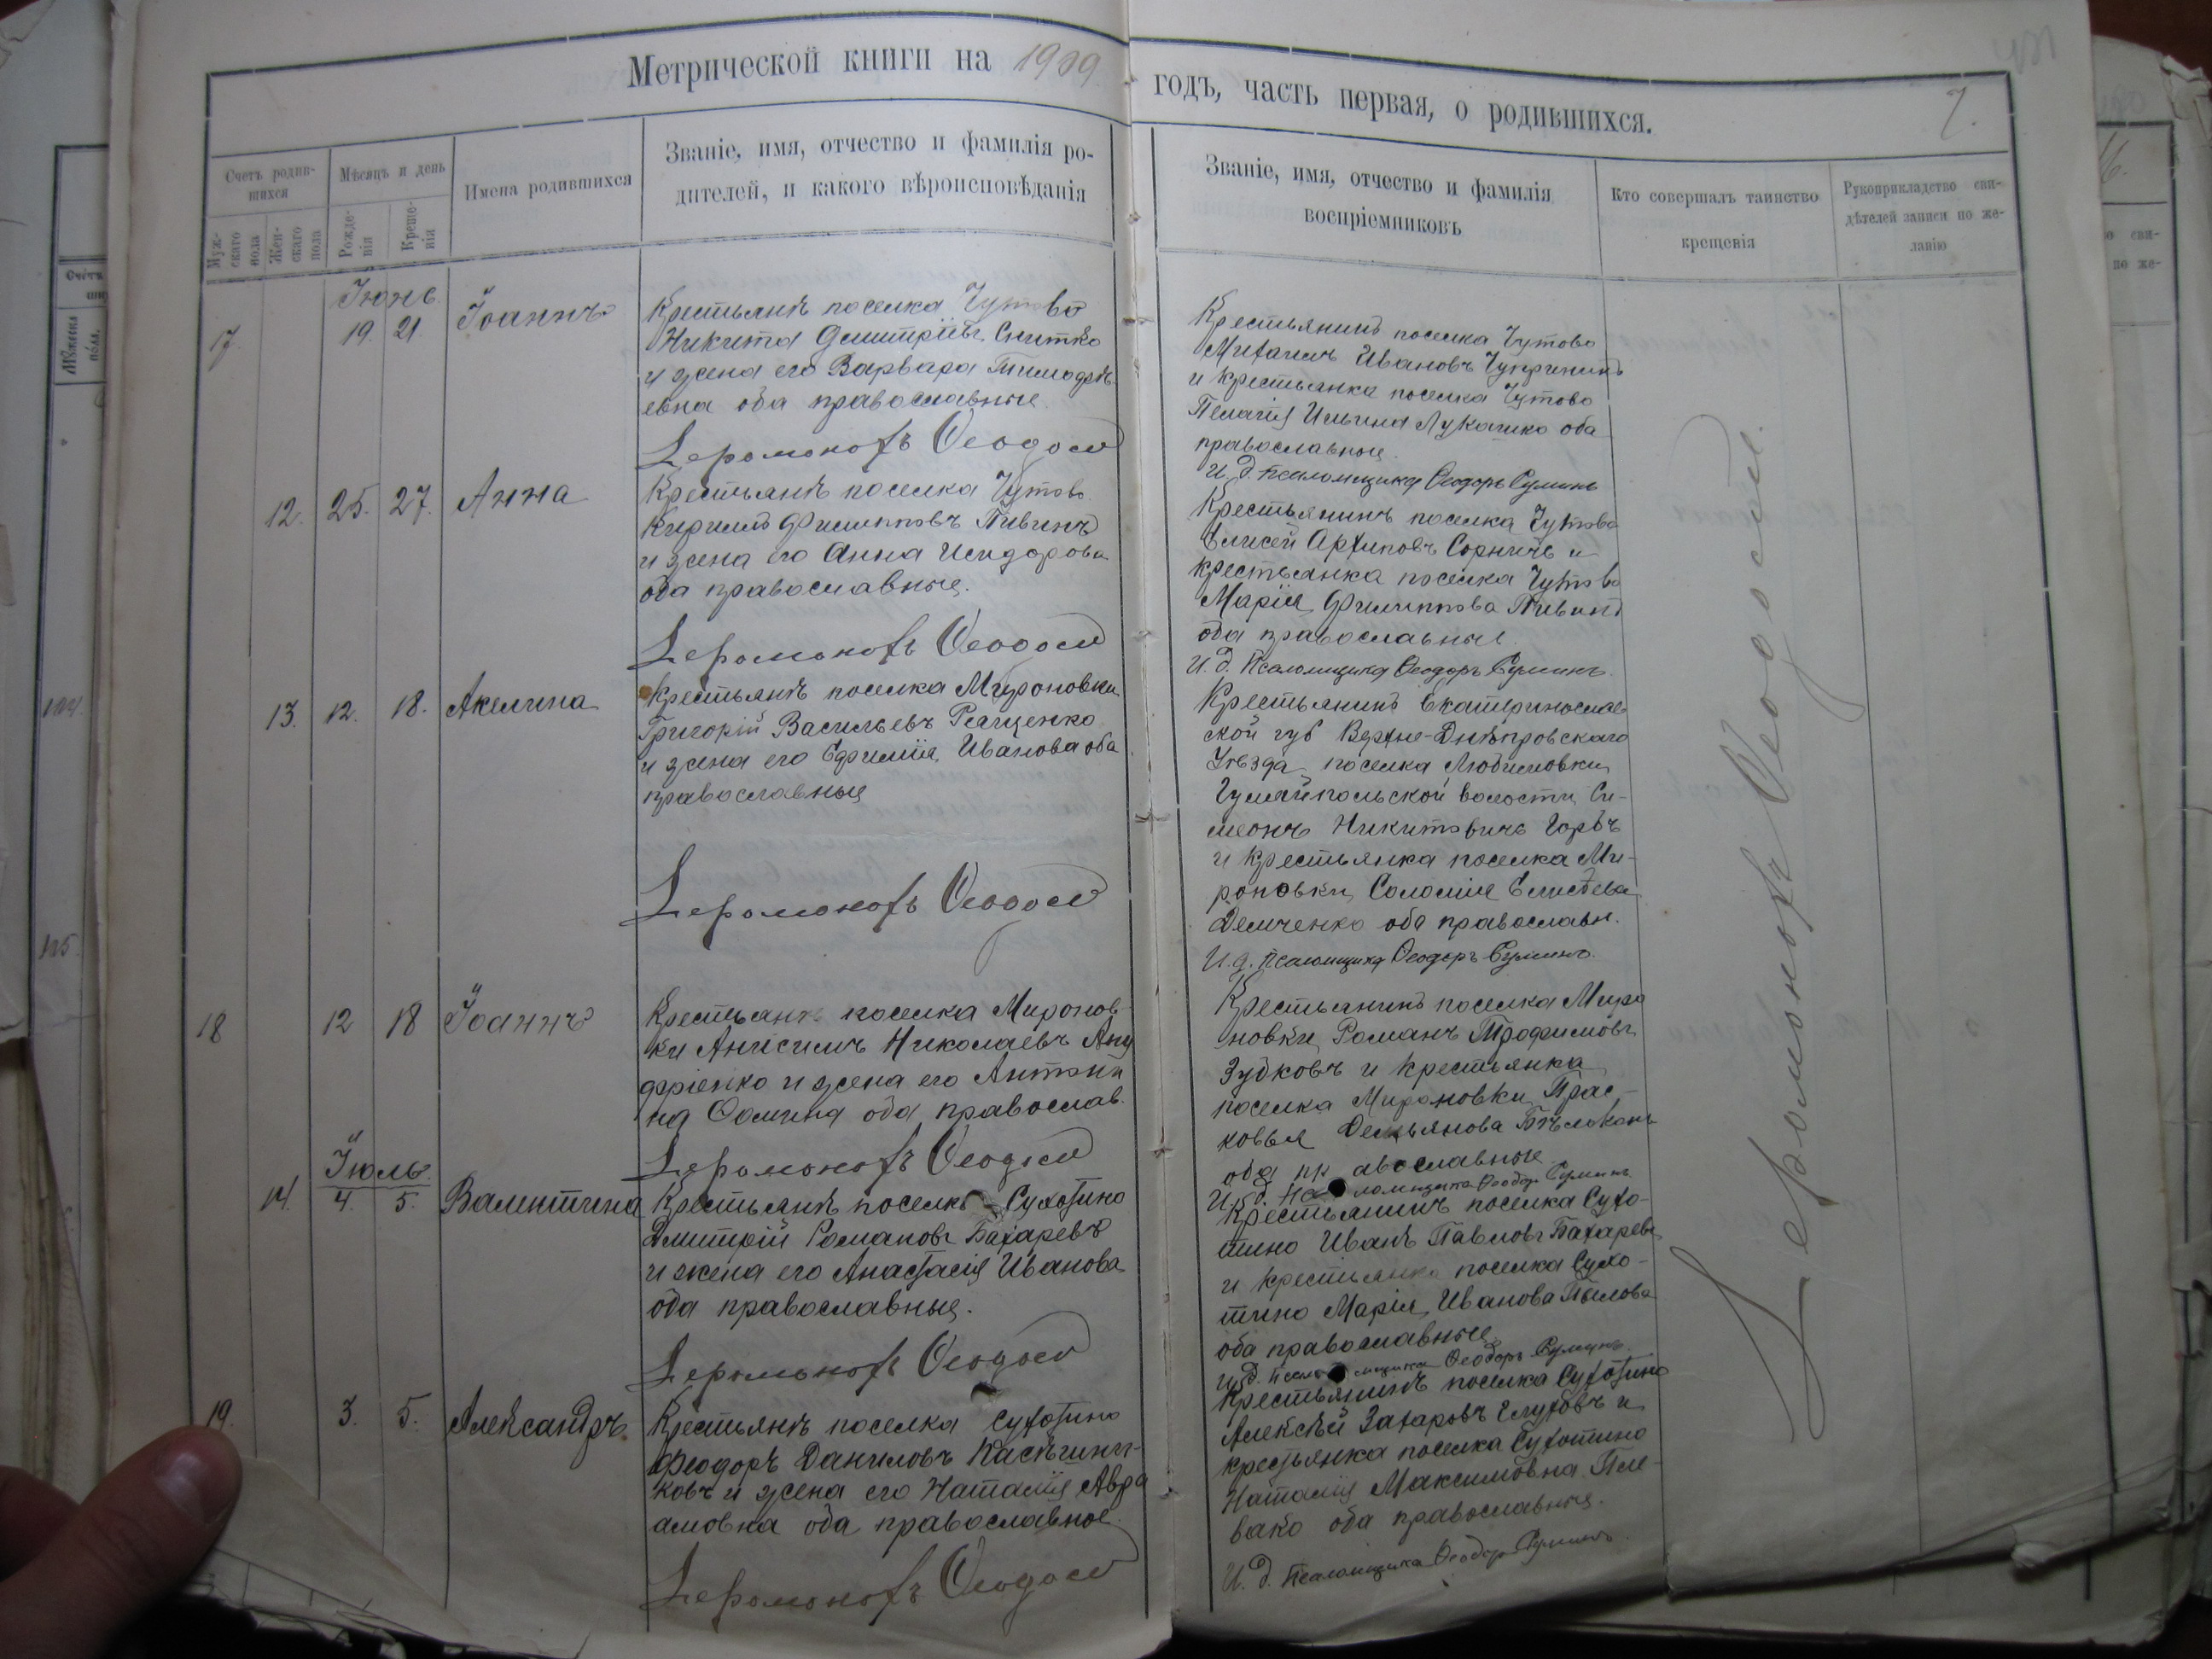 Метрической книги на 1909
годъ, часть первая, о родившихся.
7.
Счетъ родив-
шихся
Муж-
скаго
пола
Жен-
скаго
пола
Мѣсяцъ и день
Рожде-
нія
Креще-
нія
Имена родившихся
Званіе, имя, отчество и фамилія ро-
дителей, и какого вѣроисповѣданія
Званіе, имя, отчество и фамилія
воспріемниковъ
Кто совершалъ таинство
крещенія
Рукоприкладство сви-
дѣтелей записи по же-
ланію
Іюнь
17. 19. 21. Іоаннъ
Крестьянъ поселка Чутово
Никита Димитріевъ Снитко
и жена его Варвара Тимофѣ-
евна оба православные
Іеромонахъ Ѳеодосій
Крестьянинъ поселка Чутово
Михаилъ Ивановъ Чупрининъ
и крестьянка поселка Чутово
Пелагія Ильина Лукашко оба
православные
И. д. Псаломщика Ѳеодоръ Суминъ
12. 25. 27. Анна
Крестьянъ поселка Чутово
Кириллъ Филипповъ Пивинъ
и жена его Анна Исидорова
оба православные.
Іеромонахъ Ѳеодосій
Крестьянинъ поселка Чутово
Елисей Архиповъ и
крестьянка поселка Чутово
Марія Филиппова Пивинъ
оба православные
И. д. Псаломщика Ѳеодоръ Суминъ.
13. 12. 18. Акелина
Крестьянъ поселка Мироновки
Григорій Васильевъ
и жена его Ефимія Иванова оба
православные
Іеромонахъ Ѳеодосій
Крестьянинъ Екатеринослав
ской губ Верхне-Днѣпровскаго
Уѣзда поселка Любимовки
Гуляйпольской волости Си-
меонъ Никитовичъ
и крестьянка поселка Ми-
роновки Соломія Елисѣева
Демченко оба православн.
И. д. Псаломщика Ѳеодоръ Суминъ.
18 12 18 Іоаннъ
Крестьянъ поселка Миронов-
ки Анисимъ Николаевъ Ану
фріенко и жена его Антони
на Ѳомина оба православ.
Іеромонахъ Ѳеодосій
Крестьянинъ поселка Миро
новки Романъ Трофимовъ
Зубковъ и крестьянка
поселка Мироновки Прас-
ковья Демьянова Бѣлоконь
оба православные
И. д. Псаломщика Ѳеодоръ Суминъ
Іюль
14. 4. 5. Валентина
Крестьянъ поселка Сухотино
Димитрій Романовъ Бахаревъ
и жена его Анастасія Иванова
оба православные.
Іеромонахъ Ѳеодосій
Крестьянинъ поселка Сухо-
тино Иванъ Павловъ Бахаревъ
и крестьянка поселка Сухо-
тино Марія Иванова
оба православные
И. д. Псаломщика Ѳеодоръ Суминъ.
19. 3. 5. Александръ
Крестьянъ поселка Сухотино
Феодоръ Даниловъ
ковъ и жена его Наталія Авра
амовна оба православные
Іеромонахъ Ѳеодосій
Крестьянинъ поселка Сухотино
Алексѣй Захаровъ и
крестьянка поселка Сухотино
Наталія Максимовна Пле-
вако оба православные.
И. д. Псаломщика Ѳеодоръ Суминъ.
Іеромонахъ Ѳеодосій.